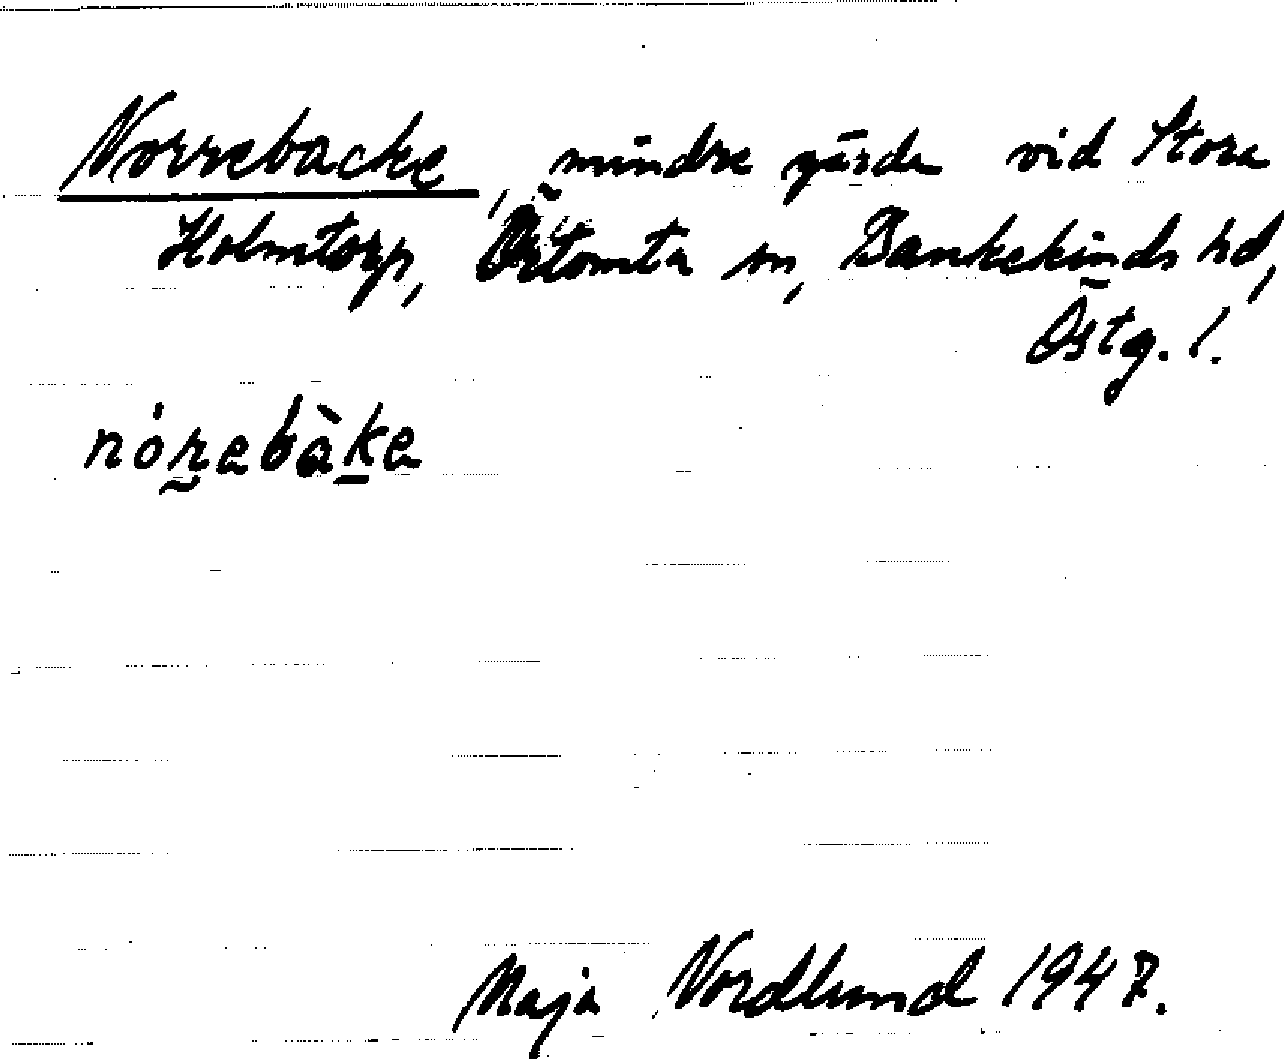 Norrebacke, mindre gärde vid Stora
Holmtorp, Örtomta sn, Bankekinds hd,
Östg. l.
nórebàke
Maja Nordlund 1947.